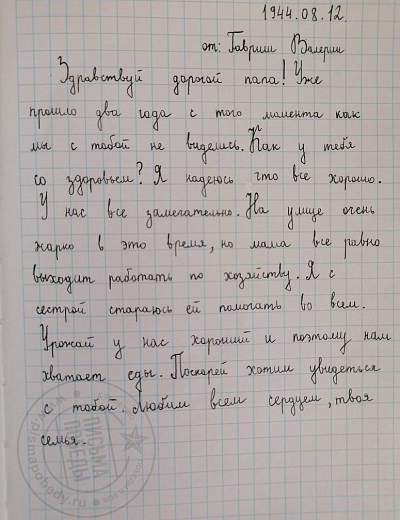 1944.08.12.
от: Гавриш Валерии
Здравствуй дорогой папа! Уже
прошло два года с того момента как
мы с тобой не виделись. Как у тебя
со здоровьем? Я надеюсь что все хорошо.
У нас все замечательно. На улице очень
жарко в это время, но мама все равно
выходит работать по хозяйству. Я с
сестрой стараюсь ей помогать во всем.
Урожай у нас хороший и поэтому нам
хватает еды. Поскорей хотим увидеться
с тобой. Любим всем сердцем, твоя
семья.
ПИСЬМА
ПОБЕДЫ
www.pismapobedy.ru